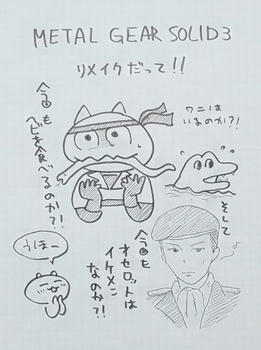 METAL GEAR SOLID 3
リメイクだって!!
今回も
ヘビを食べてるのか?!
ワニは
いるのか?!
そして
今回も
オセロットは
イケメン
なのか?!
うほー